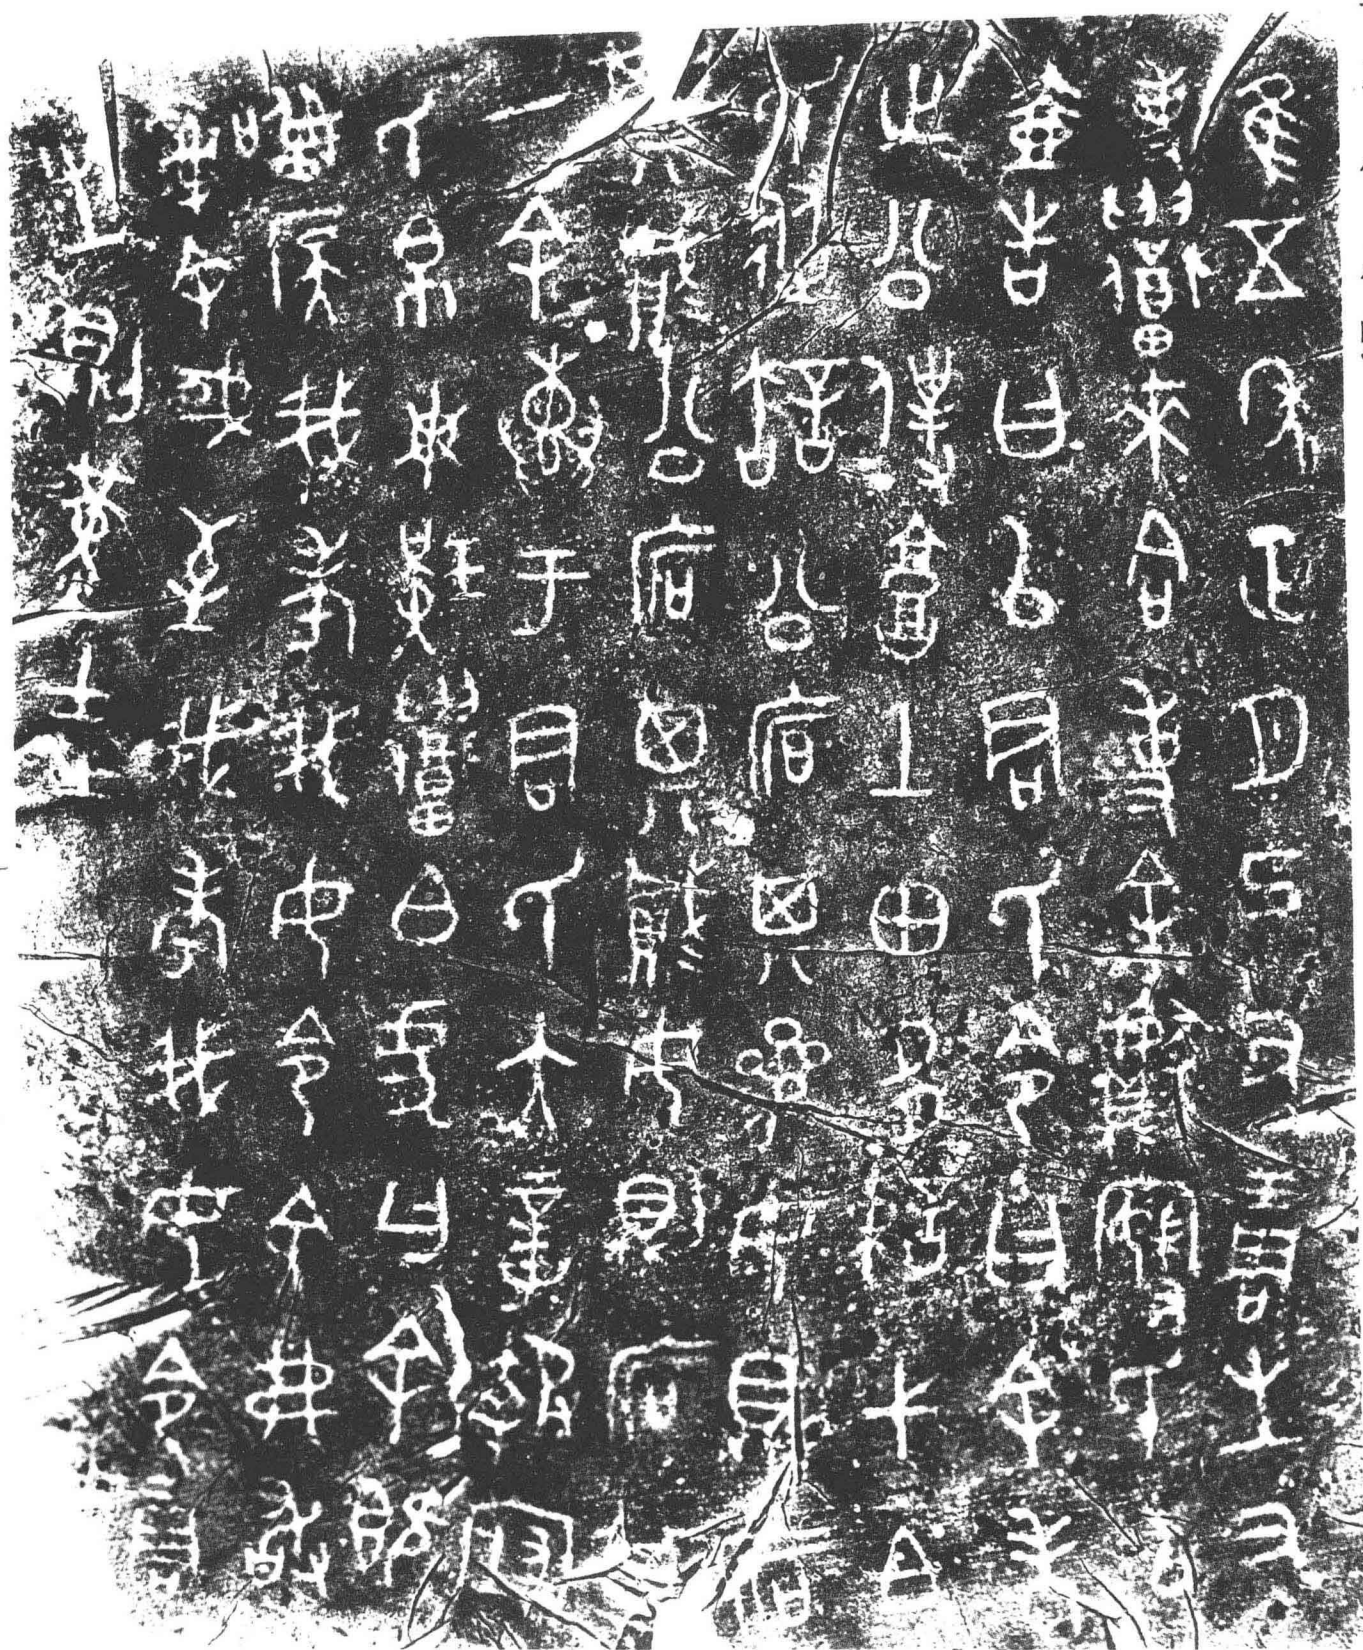 隹五年正月己丑琱生又
事召來合事余獻婦氏以
壺告曰以君氏令曰余老
止公僕庸土田多諫弋白
氏從許公宕其參女則宕
其貳公宕其貳女則宕其
一余惠于君氏大章報婦
氏帛束璜召白虎曰余既
訊厎我考我母令余弗敢
亂余或至我考我母令琱
生則堇圭